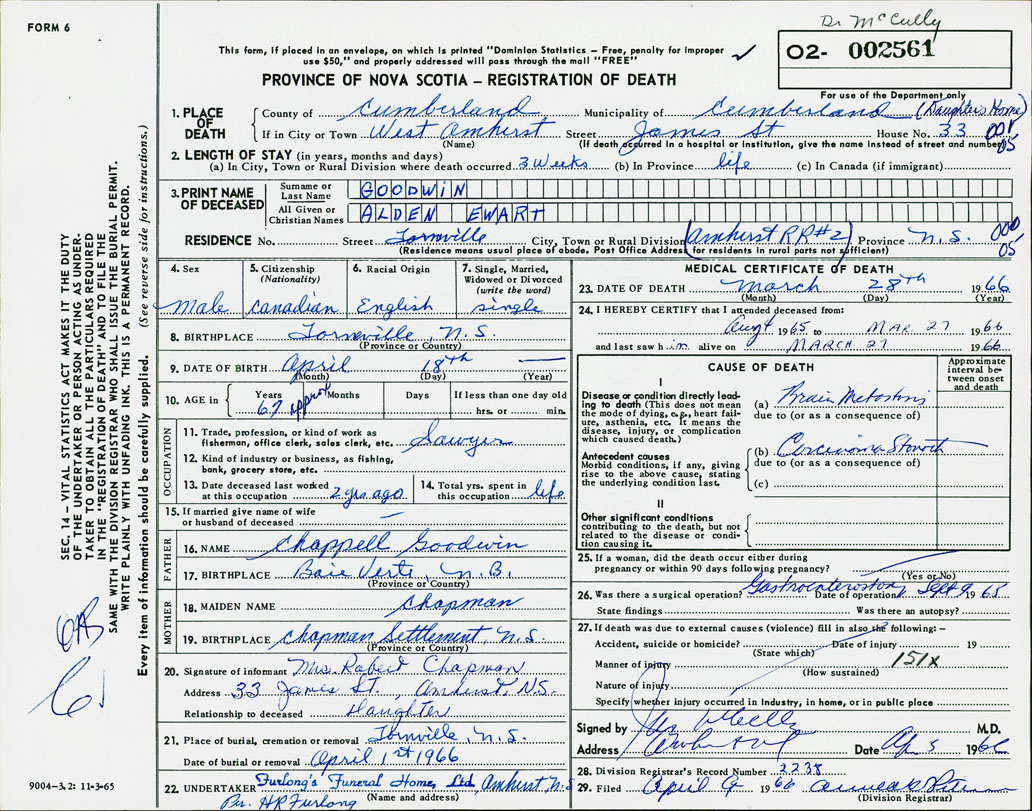 Dr McCully
FORM 6
This form, if placed in an envelope, on which is printed "Dominion Statistics – Free, penalty for improper
use $50," and properly addressed will pass through the mail "FREE" ✓
O2- 002561
PROVINCE OF NOVA SCOTIA – REGISTRATION OF DEATH
For use of the Department only
1. PLACE OF DEATH County of Cumberland Municipality of Cumberland (Daughter's Home)
If in City or Town West Amherst Street James St House No. 33 001
(Name) (If death occurred in a hospital or institution, give the name instead of street and number) 05
2. LENGTH OF STAY (in years, months and days)
(a) In City, Town or Rural Division where death occurred 3 Weeks (b) In Province life (c) In Canada (if immigrant)
3. PRINT NAME OF DECEASED Surname or Last Name GOODWIN
All Given or Christian Names ALDEN EWART
RESIDENCE No. Street Tornville City, Town or Rural Division (Amherst RR#2) Province N.S. 000
(Residence means usual place of abode. Post Office Address for residents in rural parts not sufficient) 05
4. Sex Male
5. Citizenship (Nationality) Canadian
6. Racial Origin English
7. Single, Married, Widowed or Divorced (write the word) single
8. BIRTHPLACE Tornville, N.S.
(Province or Country)
9. DATE OF BIRTH April 18th —
(Month) (Day) (Year)
10. AGE in Years 67 approx Months Days If less than one day old
hrs. or min.
OCCUPATION
11. Trade, profession, or kind of work as
fisherman, office clerk, sales clerk, etc. Sawyer
12. Kind of industry or business, as fishing,
bank, grocery store, etc.
13. Date deceased last worked
at this occupation 2 yrs ago
14. Total yrs. spent in
this occupation life
15. If married give name of wife
or husband of deceased —
FATHER
16. NAME Chappell Goodwin
17. BIRTHPLACE Baie Verte, N.B.
(Province or Country)
MOTHER
18. MAIDEN NAME Chapman
19. BIRTHPLACE Chapman Settlement N.S.
(Province or Country)
20. Signature of informant Mrs. Robert Chapman
Address 33 James St., Amherst, N.S.
Relationship to deceased Daughter
21. Place of burial, cremation or removal Tornville, N.S.
Date of burial or removal April 1st 1966
22. UNDERTAKER Furlong's Funeral Home, Ltd, Amherst N.S
Pr. HR Furlong (Name and address)
MEDICAL CERTIFICATE OF DEATH
23. DATE OF DEATH March 28th 1966
(Month) (Day) (Year)
24. I HEREBY CERTIFY that I attended deceased from:
Aug 1965 to MAR 27 1966
and last saw him alive on MARCH 27 1966
CAUSE OF DEATH
Approximate interval between onset and death
I
Disease or condition directly leading to death (This does not mean the mode of dying, e.g., heart failure, asthenia, etc. It means the disease, injury, or complication which caused death.)
(a) Brain Metastasis
due to (or as a consequence of)
Antecedent causes
Morbid conditions, if any, giving rise to the above cause, stating the underlying condition last.
(b) Carcinoma Stomach
due to (or as a consequence of)
(c)
II
Other significant conditions
contributing to the death, but not related to the disease or condition causing it.
25. If a woman, did the death occur either during
pregnancy or within 90 days following pregnancy?
(Yes or No)
26. Was there a surgical operation? Gastroenterostomy Date of operation Sept 9 1965
State findings Was there an autopsy?
27. If death was due to external causes (violence) fill in also the following: –
Accident, suicide or homicide? Date of injury 19
(State which)
Manner of injury 151X
(How sustained)
Nature of injury
Specify whether injury occurred in industry, in home, or in public place
Signed by M.D.
Address Date Ap 5 1966
28. Division Registrar's Record Number 2238
29. Filed April 9 1966
(Division Registrar)
SEC. 14 – VITAL STATISTICS ACT MAKES IT THE DUTY
OF THE UNDERTAKER OR PERSON ACTING AS UNDER-
TAKER TO OBTAIN ALL THE PARTICULARS REQUIRED
IN THE "REGISTRATION OF DEATH" AND TO FILE THE
SAME WITH THE DIVISION REGISTRAR WHO SHALL ISSUE THE BURIAL PERMIT.
WRITE PLAINLY WITH UNFADING INK. THIS IS A PERMANENT RECORD.
Every item of information should be carefully supplied. (See reverse side for instructions.)
9004-3.2: 11-3-65